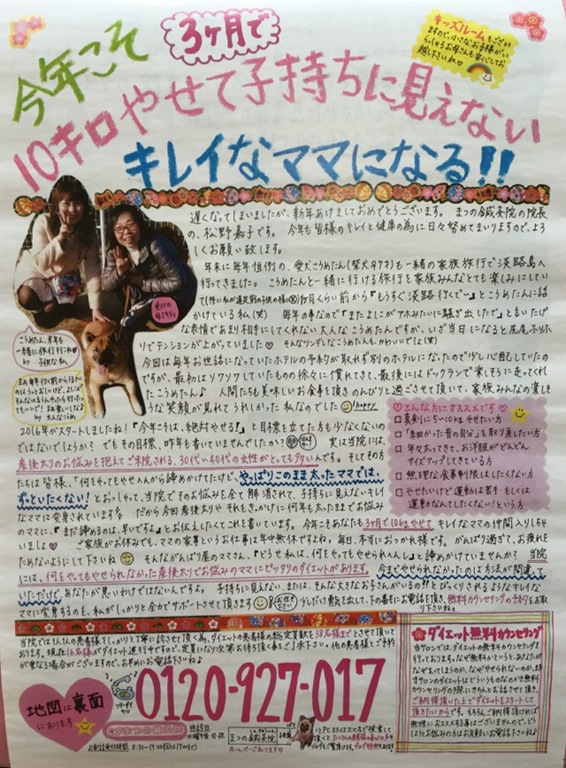 今年こそ
3ヶ月で
10キロやせて子持ちに見えない
キレイなママになる!!
キッズルームもござい
ますので、小さなお子様がい
らっしゃるお母さんも安心してお
越し下さいね♡
遅くなってしまいましたが、新年あけましておめでとうございます。まつの鍼灸院の院長
の、松野嘉子です。今年も皆様のキレイと健康の為に日々努めてまいりますので、よろ
しくお願い致します。
年末に毎年恒例の、愛犬こうめたん(柴犬
も一緒の家族旅行で淡路島へ
行ってきました。こうめたんと一緒に行ける旅行も家族みんなとても楽しみにしてい
て
1ヶ月くらい前から『もうすぐ淡路行くで〜』とこうめたんに話
かけている私(笑)
表情であまり相手にしてくれない大人なこうめたんですが、いざ当日になると尻尾ふりふ
りでテンションが上がっていました♥そんなツンデレなこうめたんも、かわいいでしょ(笑)
今回は毎年お世話になっていたホテルの予約が取れず別のホテルになったので少しソワソワしていたの
こうめたん♪ 人間たちも美味しいお食事を頂きのんびりと過ごさせて頂いて、家族みんなの楽しそ
うな笑顔が見れてうれしかった私なのでした
こうめたん、来年も
一緒に旅行行こうね
by 子供な私
2016年がスタートしましたね!『今年こそは、絶対やせる!』と目標を立てた方も少なくないの
ではないでしょうか?でもその目標、昨年も書いていませんでしたか?
実は当院には、
産後太りのお悩みを抱えてご来院される、30代〜40代の女性がとっても多いんです。そしてその方
たちは皆様、「何をやってもやせへんから諦めかけてたけど、やっぱりこのまま太ったママでは、
ずっといたくない!」とおっしゃって、当院でそのお悩みを全て解消されて、子持ちに見えないキレイ
なママに変身されています
だから今回産後太りや それをきっかけに何年も太ったままでお悩み
のママに、『まだ諦めるのは、早いですよ』とお伝えしたくてこれを書いています。今年こそあなたも3ヶ月で10kgやせて キレイなママの仲間入りしちゃ
いましょ♥
ご家族がお休みでも、ママの家事というお仕事は年中無休ですよね。毎日、本当におつかれ様です。がんばり過ぎて、お疲れを
ためないようにして下さいね
そんながんばり屋のママさん、『どうせ私は、何をやってもやせられへんし』と諦めかけていませんか?当院
には、何をやってもやせられなかった産後太りでお悩みのママにピッタリのダイエットがあります。今までやせられなかったのは方法が間違って
いただけ。あなたが悪いわけではないんですよ。子持ちに見えない、または、そんな大きなお子さんがいるの!!とびっくりされるようなキレイな
ママに変身するのを、私がしっかりと全力でサポートさせて頂きます
少しだけ勇気を出して、下の番号にお電話を頂き、無料カウンセリングの予約をお取
り下さいね。
♡こんな方にオススメです♡
□真剣に5〜10kgやせたい方
□「未婚だった昔の自分」を取り戻したい方
□年々太ってきて、お洋服がどんどん
サイズアップしてきている方
□無理な食事制限はしたくない方
□やせたいけど運動は苦手・もしくは
運動なんてしたくない!という方
当院では1人1人の患者様をしっかりと丁寧に診させて頂く為、ダイエットの患者様の総定員数を38名様までとさせて頂いて
おります。現在16名様がダイエット進行中ですので、定員になり次第お待ち頂く事をご了承下さい。(他の患者様とご予約
が重なる場合がございますので、お早めにお電話下さいね♪)
フリーダイヤル
0120-927-017
地図は裏面
にあります
まつの鍼灸院
検索
ホームページあります
ダイエット無料カウンセリング
当サロンでは、ダイエットの無料カウンセリングを
行っております。なぜ無料かというと、あなたが
なぜ太ってしまうのか、なぜやせられないのか、また
当サロンのダイエットはどういうものなのかを無料
カウンセリングの際にきちんとお話させて頂き、
ご納得頂いた上でダイエットをスタートして
頂きたいからです。もちろんご納得頂けなければ
無理にお